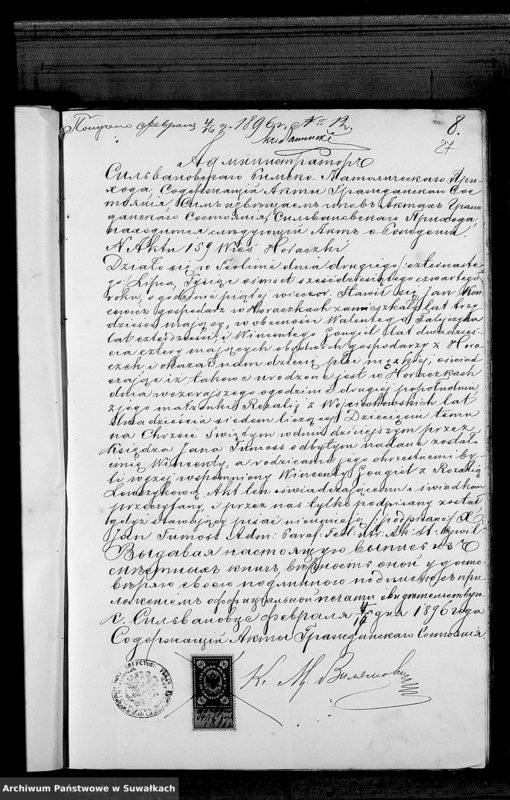 Получено февраля 4/16 д. 1896 г. № 12
8.
27
Администраторъ
Сильвановскаго Римско-Католическаго При-
хода, Содержащій Акты Гражданскаго Сос-
тоянія, Симъ извѣщаетъ что въ Актахъ Граж-
данскаго Состоянія, Сильвановскаго Прихода
находится слѣдующій Актъ о Рожденіи
N Aktu 159 Wieś Horaczki
Działo się w Teolinie dnia drugiego /:czternaste-
go:/ Lipca, Tysiąc ośmset sześćdziesiątego czwartego
roku, o godzinie piątej wieczór. Stawił się Jan
gospodarz w Horaczkach zamieszkały lat trzy-
dzieści mający, w obecności Walentego
lat czterdzieści i Wincentego Gougiel lat dwadzieś-
cia cztery mających obydwóch gospodarzy z Hora-
czek i okazał nam dziecię płci męzkiej, oświad-
czając iż takowe urodzone jest w Horaczkach
dnia wczorajszego o godzinie drugiej popołudniu
z jego małżonki Rozalii z Wojciechowskich lat
dwadzieścia siedem liczącej Dziecięciu temu
na Chrzcie Świętym w dniu dzisiejszym przez
Księdza Jana Tumoss odbytym nadane zostało
imię Wincenty, a rodzicami jego chrzestnemi by-
li wyżej wspomniony Wincenty Gougiel z Rozalią
Akt ten oświadczającemu i świadkom
przeczytany, i przez nas tylko podpisany został
gdyż stawający pisać nieumieją /:podpisano:/ X.
Jan Tumoss Adm: Paraf: Teol: utr: Ak: St: Cywil:
Выдавая настоящую выпись изъ
книгъ, вѣрность оной удосто-
вѣряю своею подлинною подписью съ при-
ложеніемъ оффиціальной печати
с. Сильвановце февраля 4/16 дня 1896 года
Содержащій Акты Гражданскаго Состоянія
К. М.
Archiwum Państwowe w Suwałkach